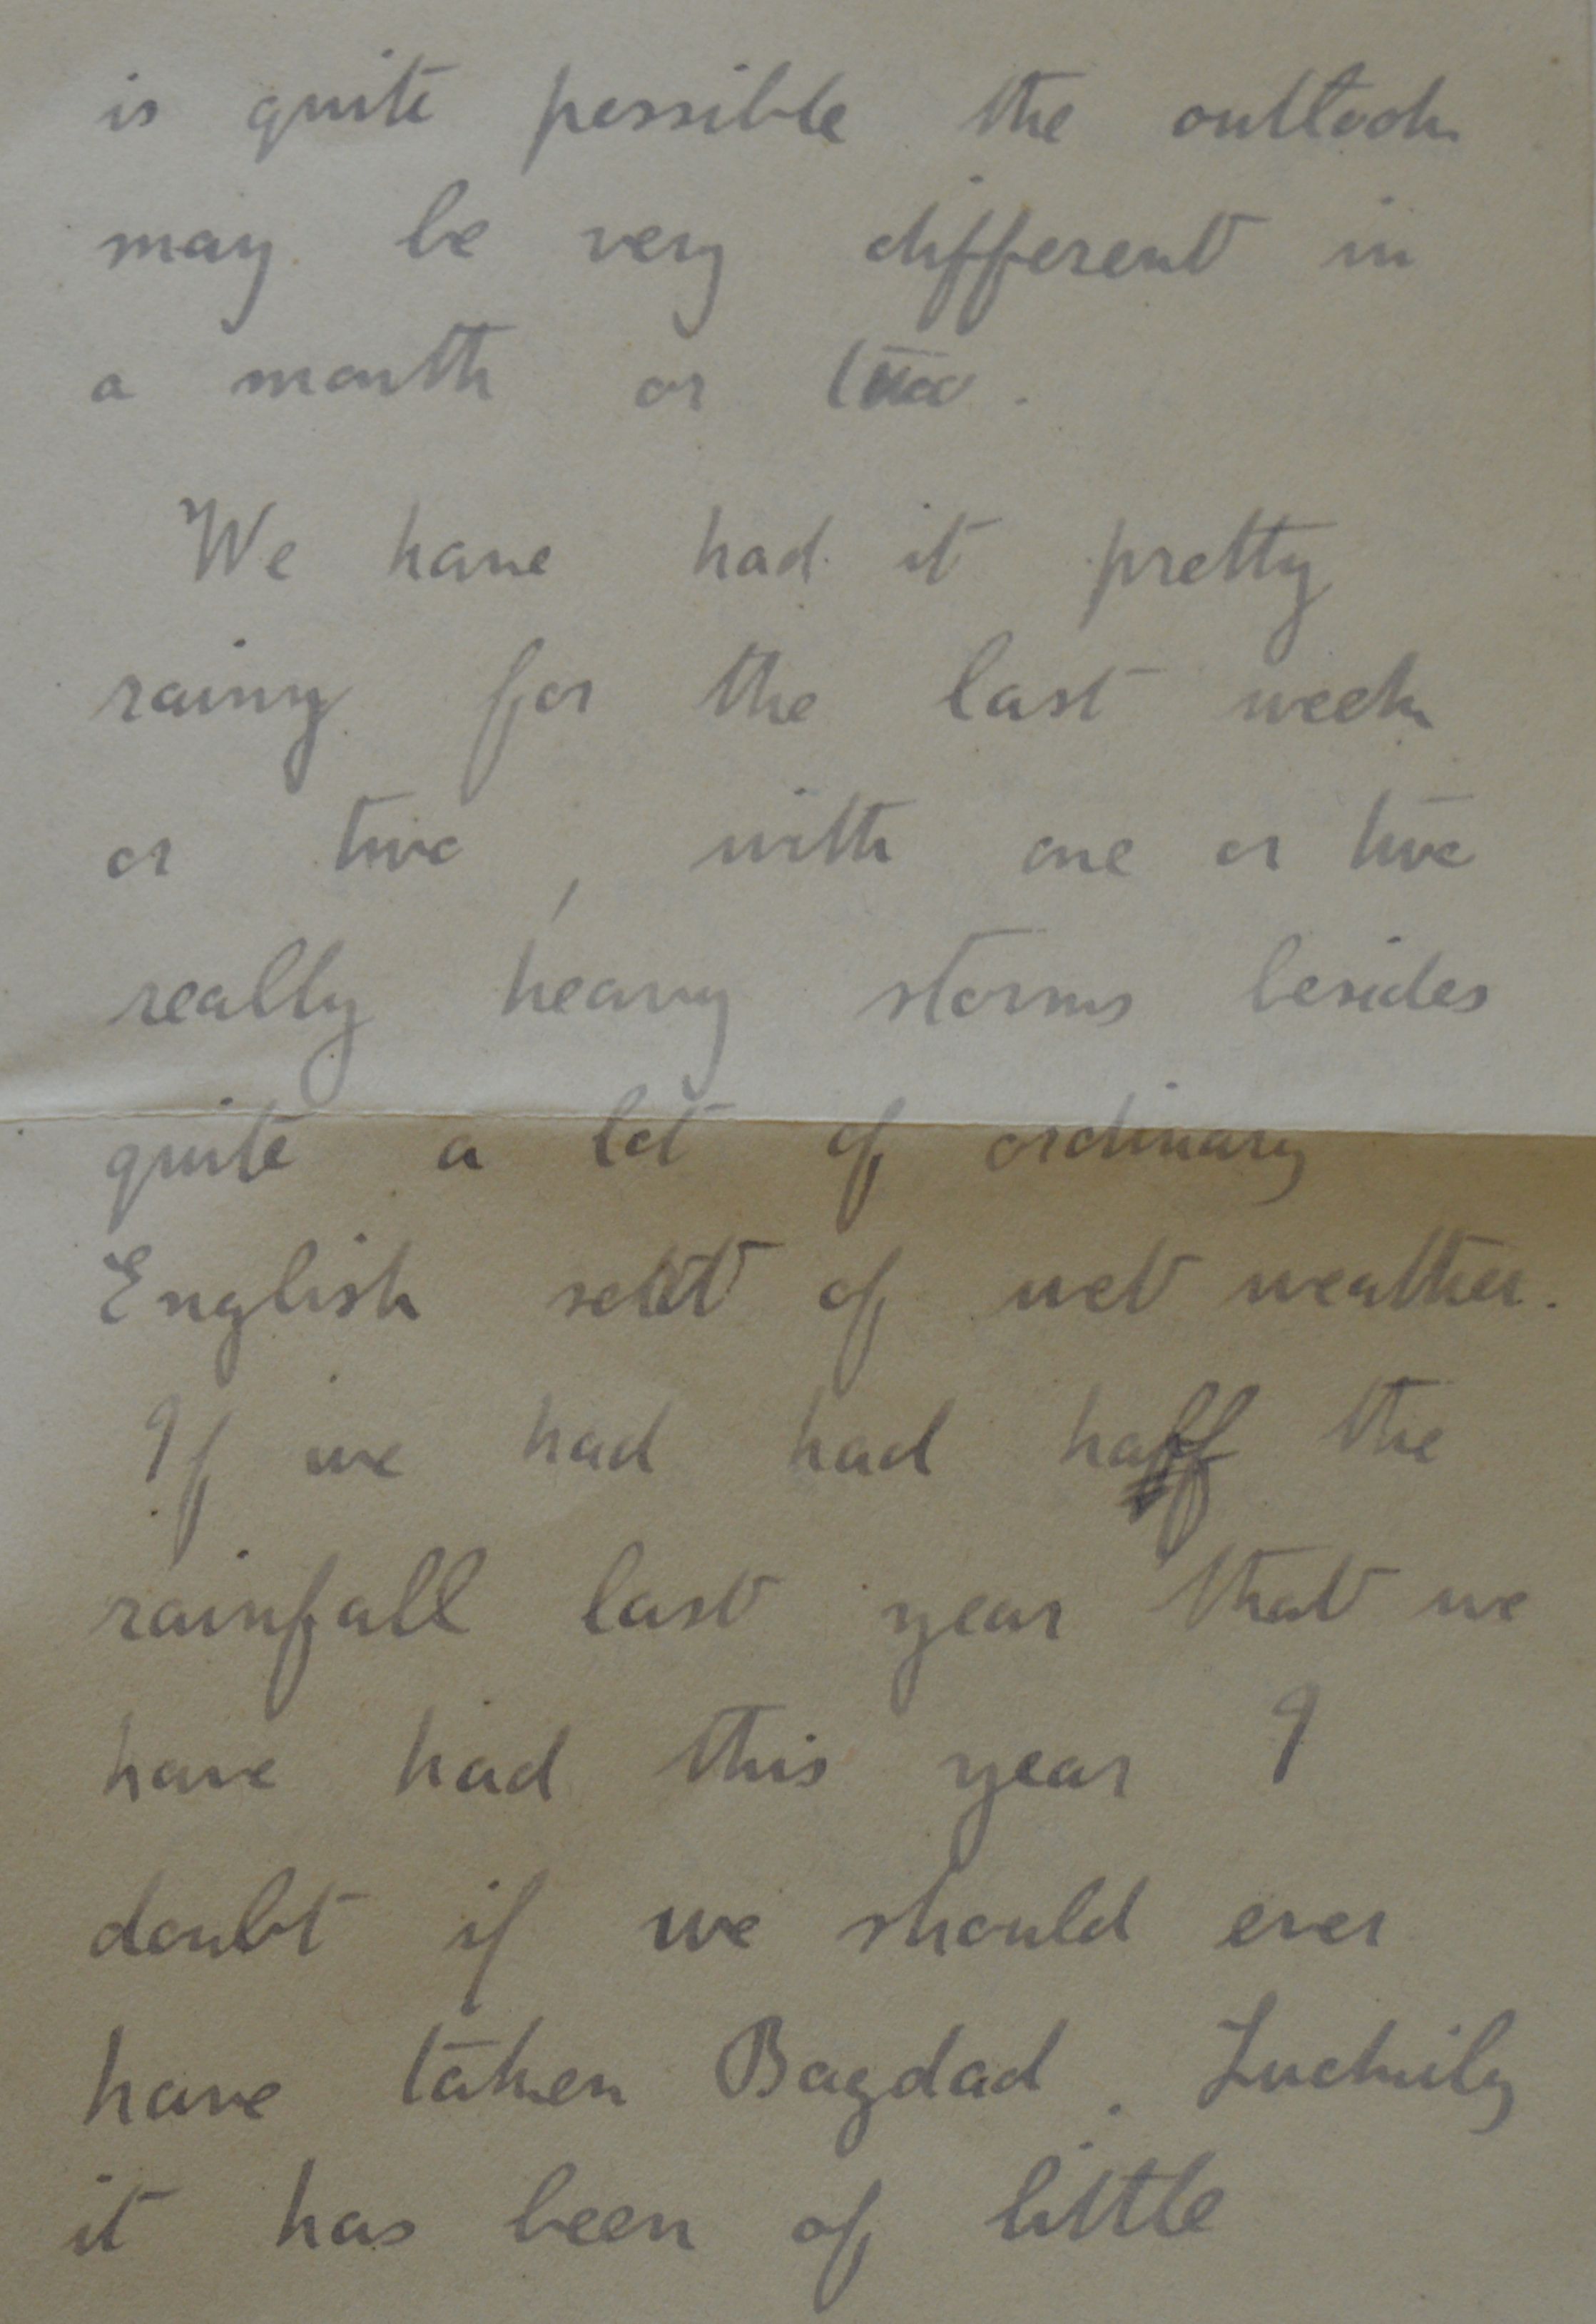 is quite possible the outlook
may be very different in
a month or two.
We have had it pretty
rainy for the last week
or two, with one or two
really heavy storms besides
quite a lot of ordinary
English of wet weather.
If we had had half the
rainfall last year that we
have had this year I
doubt if we should ever
have taken Bagdad. Luckily
it has been of little